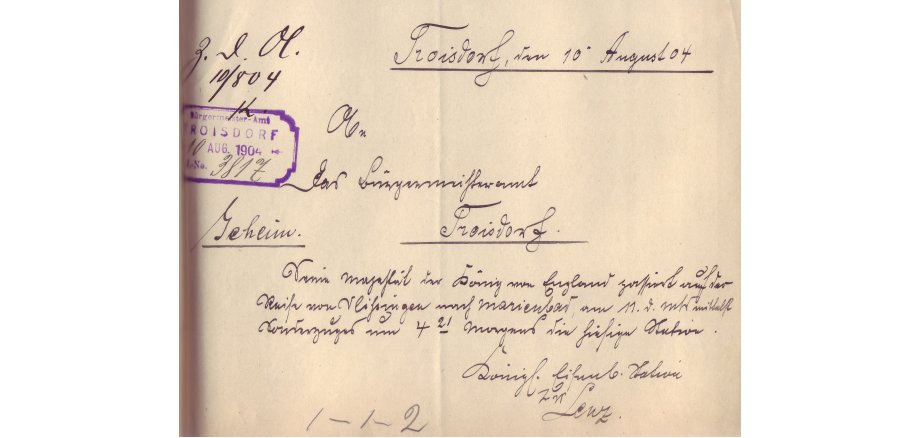 Z. d. A.
10/8 04
Troisdorf, den 10 August 04
Bürgermeister-Amt
TROISDORF
10 AUG. 1904
J.-No. 3817
An
Das Bürgermeisteramt
Geheim.
Troisdorf.
Seine Majestät der König von England passiert auf der
Reise von Vlissingen nach Marienbad am 11. d. Mts mittelst
Sonderzuges um 4 21 Morgens die hiesige Station.
Königl. Eisenb. Station
Lenz.
1-1-2